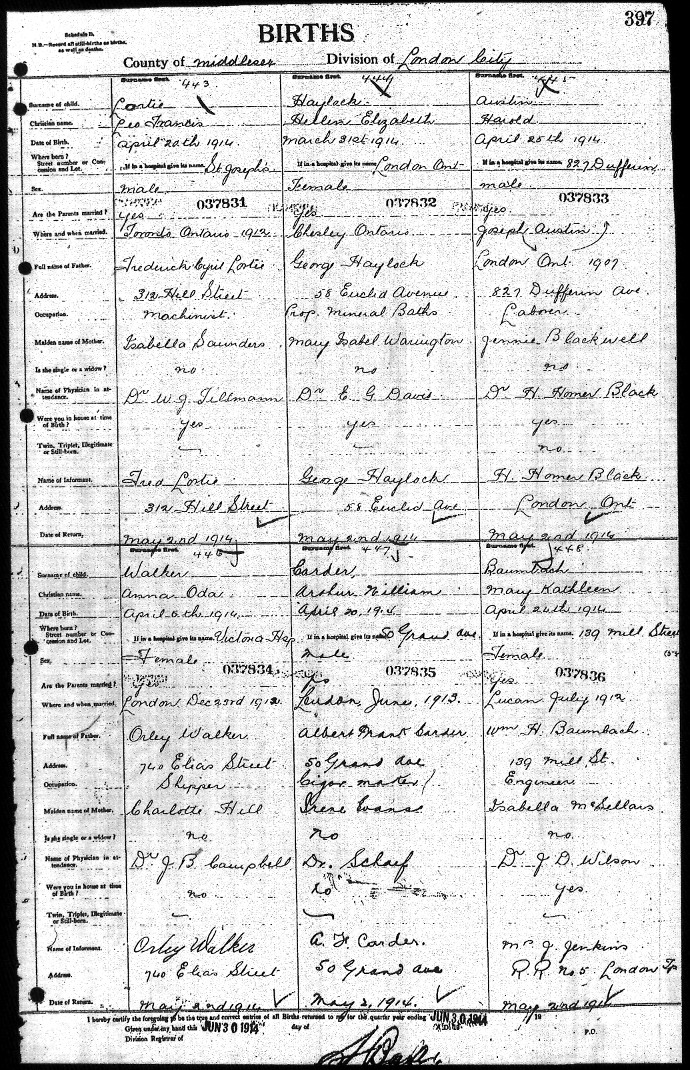 397
Schedule B.
N.B.—Record all still-births as births, as well as deaths.
BIRTHS
County of Middlesex Division of London City
Surname first. 443 Surname first. 444 Surname first. 445
Surname of child. Lortie Haylock Austin
Christian name. Leo Francis Hellen Elizabeth Harold
Date of Birth. April 20th 1914 March 31st 1914 April 25th 1914
Where born?
Street number or Concession and Lot. If in a hospital give its name, St Joseph's If in a hospital give its name, London Ont If in a hospital give its name, 827 Dufferin
Sex. male Female male
037831 037832 037833
Are the Parents married? yes yes yes
Where and when married. Toronto Ontario 1912 Chesley Ontario Joseph Austin
Full name of Father. Frederick Cyril Lortie George Haylock London Ont. 1907
Address. 312 Hill Street 58 Euclid Avenue 827 Dufferin Ave.
Occupation. Machinist. Prop. Mineral Baths Laborer
Maiden name of Mother. Isabella Saunders Mary Isabel Warington Jennie Blackwell
Is she single or a widow? no no no
Name of Physician in attendance. Dr W. J. Tillmann Dr E G Davis Dr H. Homer Black
Were you in house at time of Birth? yes yes yes
Twin, Triplet, Illegitimate or Still-born. no.
Name of Informant. Fred Lortie George Haylock H. Homer Black
Address. 312 Hill Street 58 Euclid Ave London Ont
Date of Return, May 2nd 1914 May 2nd 1914 May 2nd 1914
Surname first. 446 Surname first. 447 Surname first. 448
Surname of child. Walker Carder, Baumbach
Christian name. Anna Oda Arthur William Mary Kathleen
Date of Birth. April 6th 1914 April 20, 1914 April 26th 1914
Where born?
Street number or Concession and Lot. If in a hospital give its name, Victoria Hosp If in a hospital give its name, 50 Grand Ave. If in a hospital give its name, 139 Mill Street
Sex. Female male Female
037834 037835 037836
Are the Parents married? yes yes
Where and when married. London Dec 23rd 1912. London, June, 1913. Lucan July 1912
Full name of Father. Orley Walker Albert Frank Carder Wm H. Baumbach
Address. 740 Elias Street 50 Grand Ave 139 Mill St.
Occupation. Shipper Cigar maker Engineer
Maiden name of Mother. Charlotte Hill Irene Evans Isabella McSellars
Is she single or a widow? no no no.
Name of Physician in attendance. Dr J. B. Campbell Dr. Schaef Dr J D. Wilson
Were you in house at time of Birth? no yes.
Twin, Triplet, Illegitimate or Still-born.
Name of Informant. Orley Walker A. F. Carder. J. Jenkins
Address. 740 Elias Street 50 Grand Ave R.R. No 5 London Tp
Date of Return. May 2nd 1914 May 2, 1914. May 2nd 1914
I hereby certify the foregoing to be the true and correct entries of all Births returned to me for the quarter year ending JUN 30 1914 19
Given under my hand this JUN 30 1914 day of
Division Registrar of P.O.